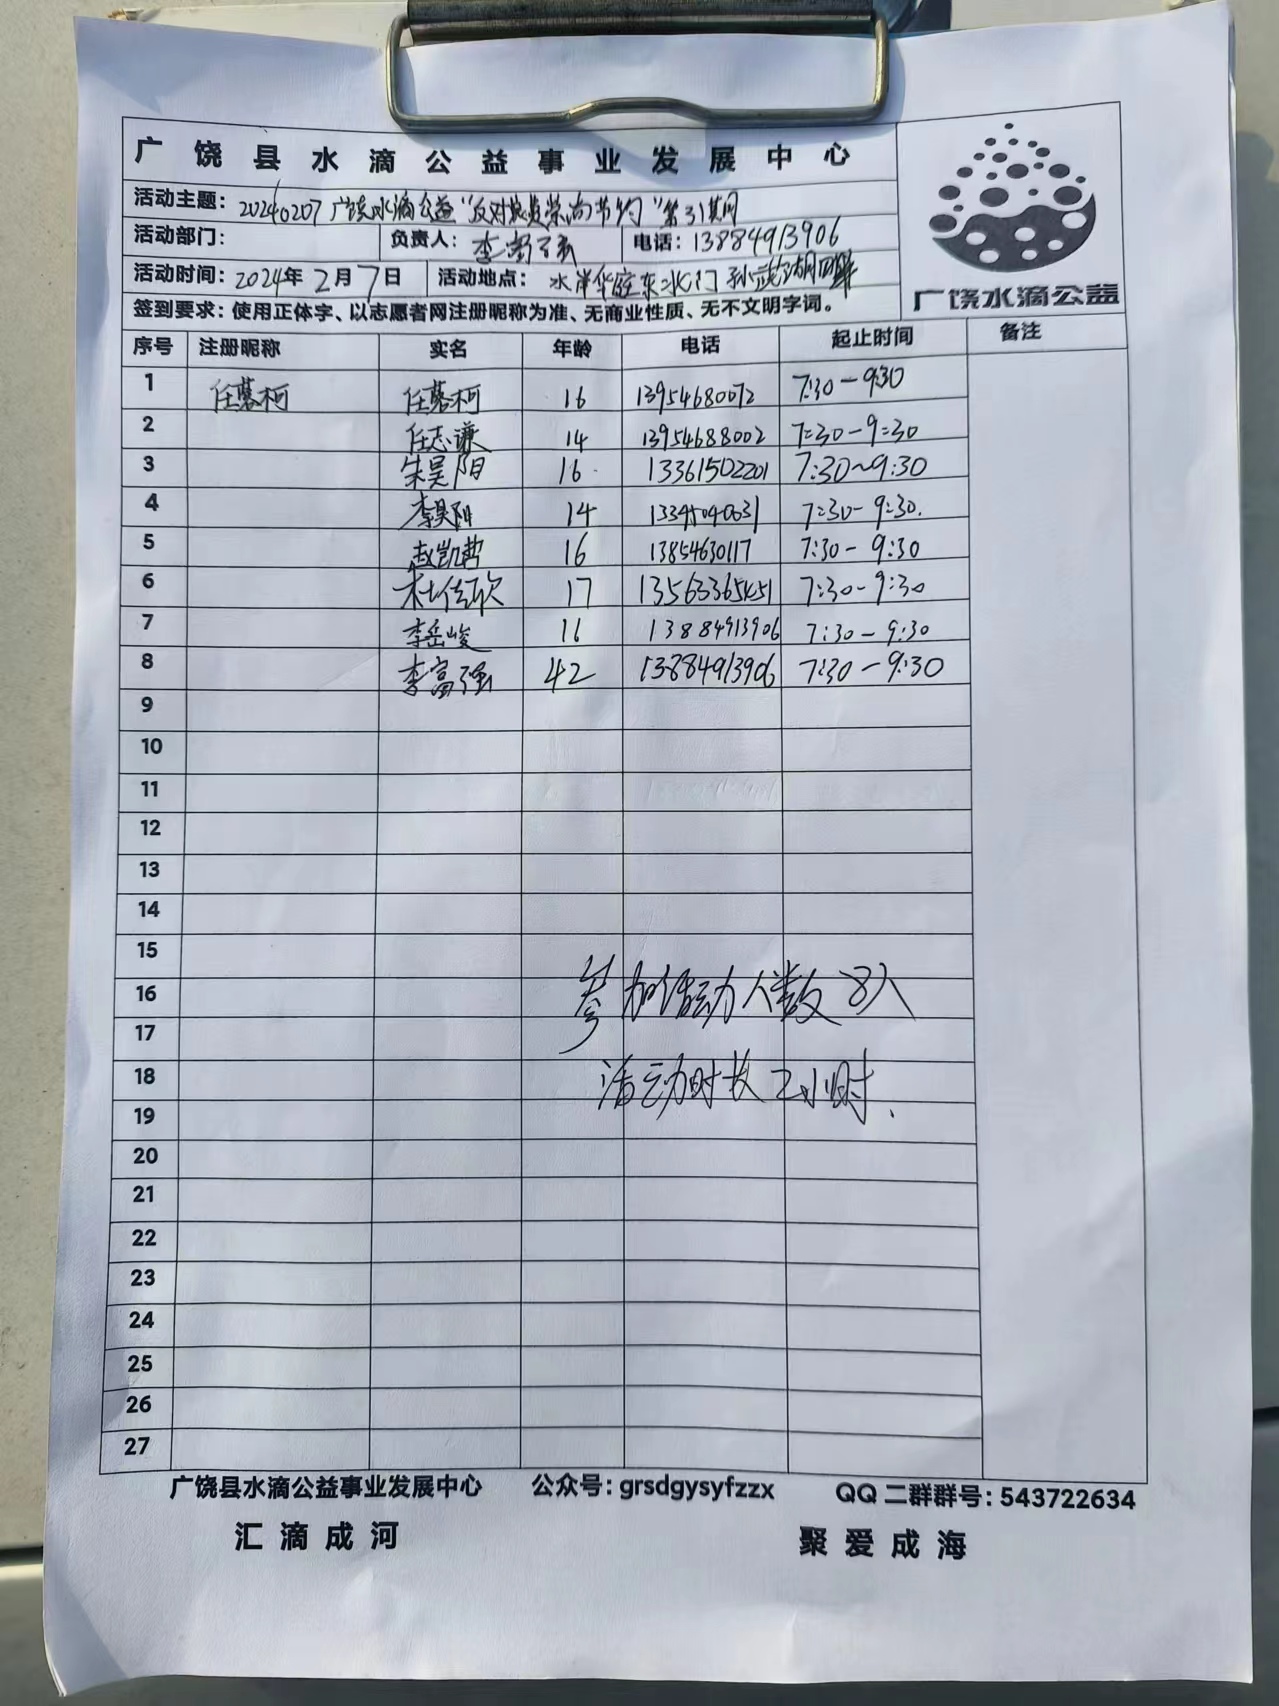 广饶县水滴公益事业发展中心
广饶水滴公益
活动主题：20240207广饶水滴公益“反对浪费崇尚节约”第31期
活动部门： 负责人：李富强 电话：13884913906
活动时间：2024年2月7日 活动地点：水岸华庭东北门 孙武湖
签到要求：使用正体字、以志愿者网注册昵称为准、无商业性质、无不文明字词。
序号 注册昵称 实名 年龄 电话 起止时间 备注
1 任慕柯 任慕柯 16 13954680072 7:30-9:30
2 任志谦 14 13954688002 7:30-9:30
3 朱昊阳 16 13361502201 7:30~9:30
4 李昊阳 14 7:30-9:30.
5 赵凯 16 13854630117 7:30-9:30
6 杜佳欣 17 7:30-9:30
7 李岳峻 16 13884913906 7:30-9:30
8 李富强 42 13884913906 7:30-9:30
9
10
11
12
13
14
15
16
17
18
19
20
21
22
23
24
25
26
27
参加活动人数8人
活动时长2小时.
广饶县水滴公益事业发展中心 公众号：grsdgysyfzzx QQ二群群号：543722634
汇滴成河 聚爱成海